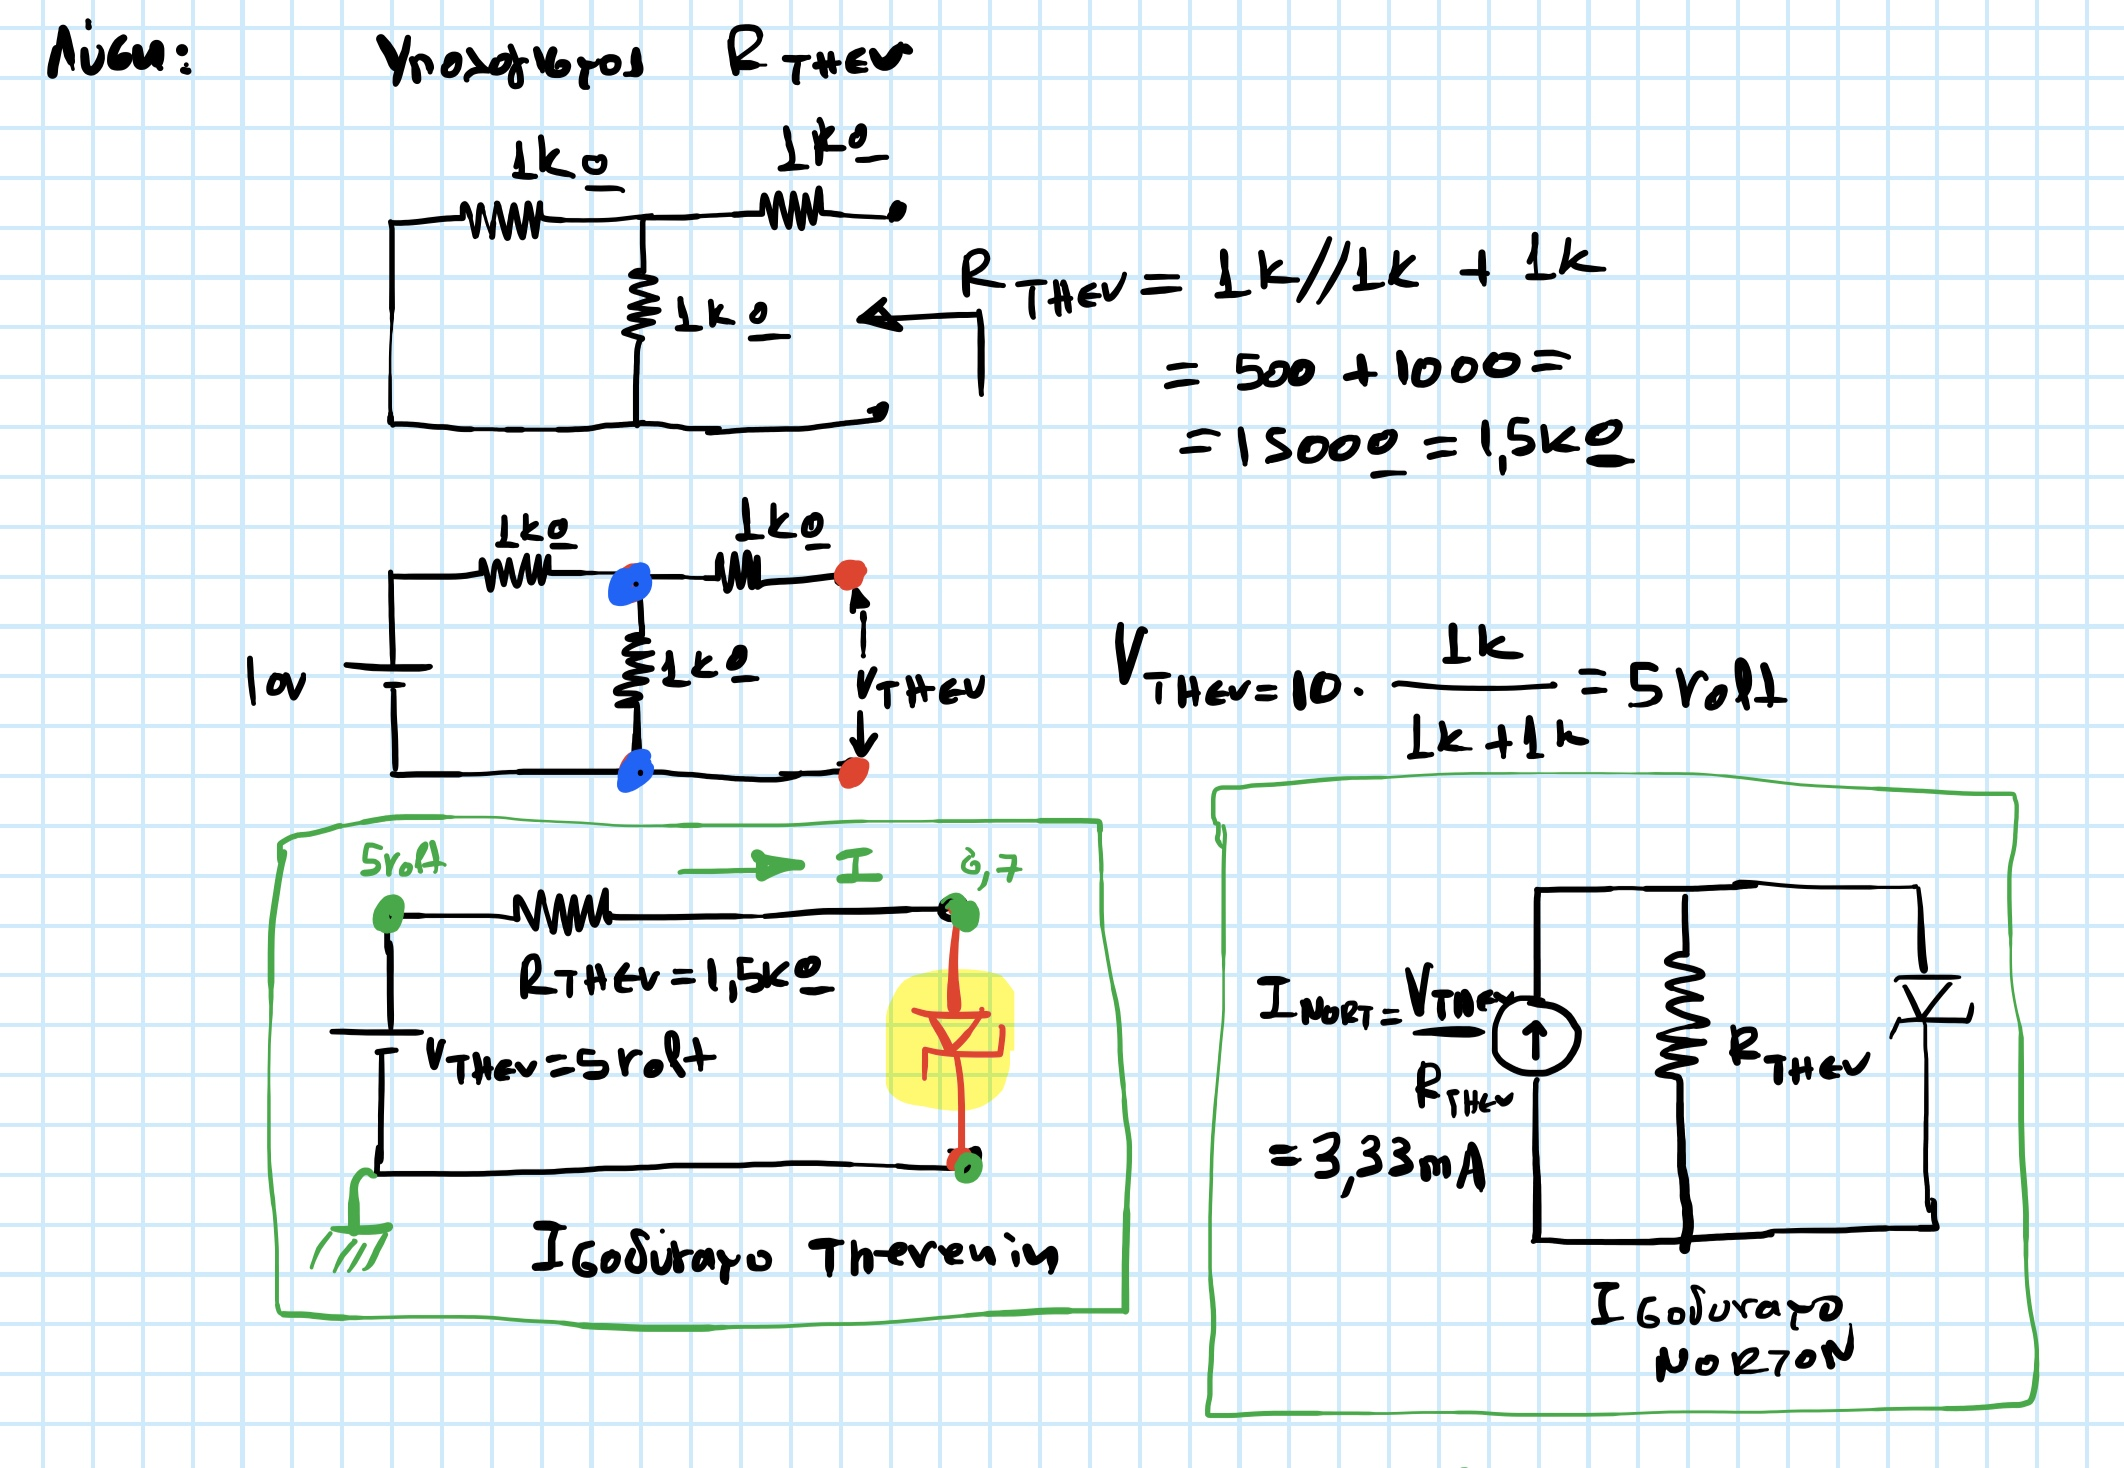 Λύση: Υπολογισμοί R THEV
1kΩ
1kΩ
1kΩ
R THEV = 1k//1k + 1k
= 500 + 1000 =
= 1500Ω = 1,5kΩ
1kΩ
1kΩ
10V
1kΩ
V THEV
V THEV = 10 · 1k / 1k + 1k = 5 Volt
5Volt
I
0,7
R THEV = 1,5kΩ
V THEV = 5 Volt
Ισοδύναμο Thevenin
I NORT = V THEV / R THEV
= 3,33mA
R THEV
Ισοδύναμο
NORTON